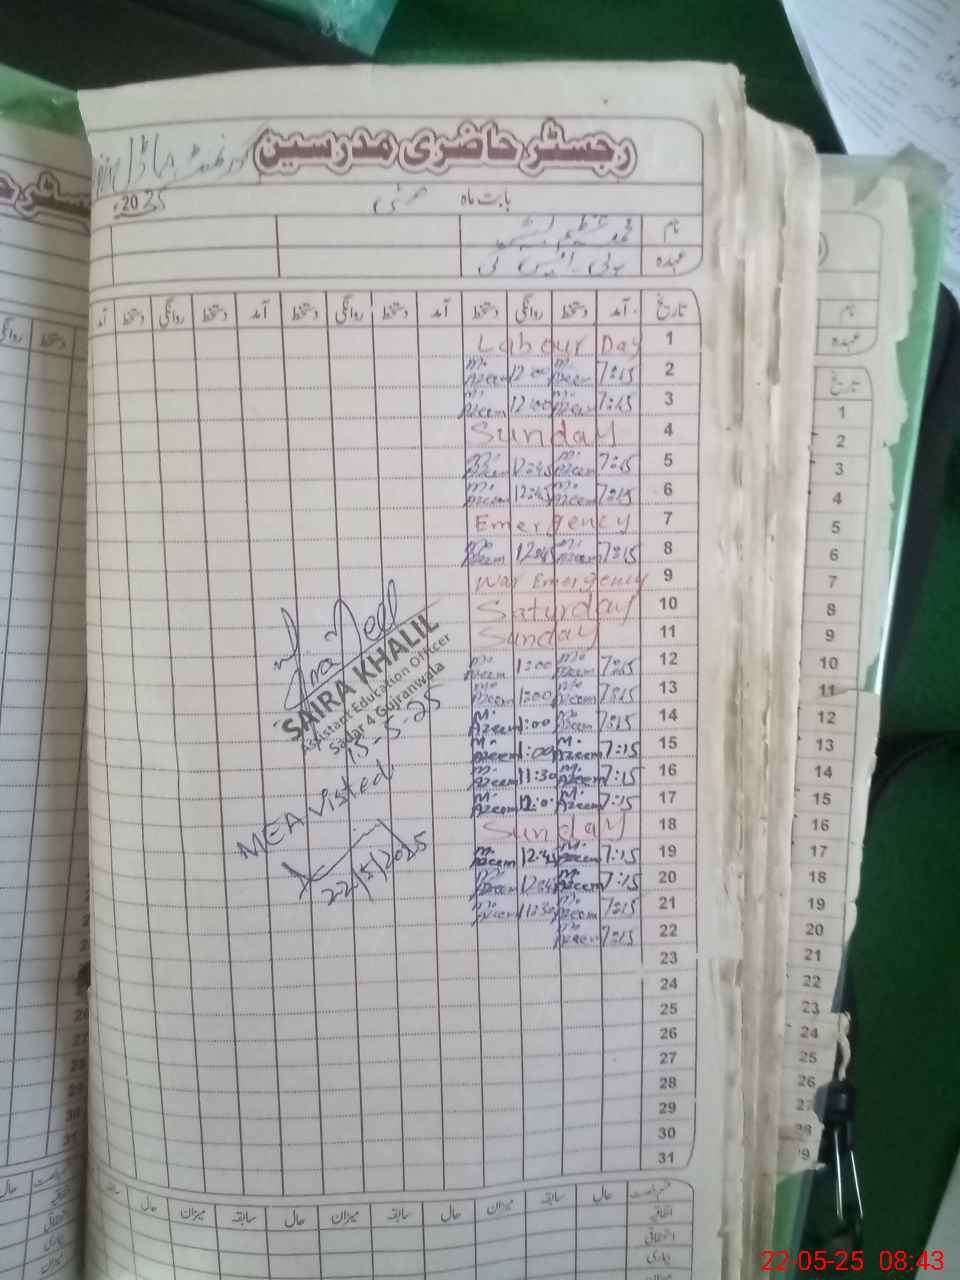 رجسٹر حاضری مدرسین گورنمنٹ ماڈل
بابت ماہ مئی 2025ء
نام محمد عظیم
عہدہ پی ایس ٹی
تاریخ آمد دستخط روانگی دستخط آمد دستخط روانگی دستخط آمد دستخط روانگی دستخط آمد
1 Labour Day
2 7:15 M. Azeem 12:00 M. Azeem
3 7:15 M. Azeem 12:00 M. Azeem
4 Sunday
5 7:15 M. Azeem 12:45 M. Azeem
6 7:15 M. Azeem 12:45 M. Azeem
7 Emergency
8 7:15 M. Azeem 12:45 M. Azeem
9 War Emergency
10 Saturday
11 Sunday
12 7:15 M. Azeem 1:00 M. Azeem
13 7:15 M. Azeem 1:00 M. Azeem
14 7:15 M. Azeem 1:00 M. Azeem
15 7:15 M. Azeem 1:00 M. Azeem
16 7:15 M. Azeem 11:30 M. Azeem
17 7:15 M. Azeem 12:0 M. Azeem
18 Sunday
19 7:15 M. Azeem 12:45 M. Azeem
20 7:15 M. Azeem 12:45 M. Azeem
21 7:15 M. Azeem 11:30 M. Azeem
22 7:15 M. Azeem
23
24
25
26
27
28
29
30
31
SAIRA KHALIL
Assistant Education Officer
Sadar 4 Gujranwala
15-5-25
MEA Visted
22/5/2025
حال سابقہ میزان حال سابقہ میزان حال سابقہ میزان حال
اتفاقی
استحقاقی
بیماری
میزان
نام
عہدہ
تاریخ
1
2
3
4
5
6
7
8
9
10
11
12
13
14
15
16
17
18
19
20
21
22
23
24
25
26
27
28
29
22-05-25 08:43